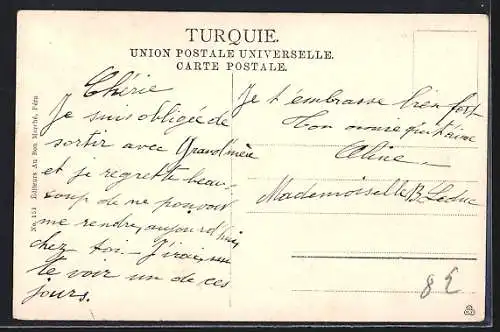 TURQUIE.
UNION POSTALE UNIVERSELLE.
CARTE POSTALE.
Chérie
Je suis obligée de
sortir avec Grand'mère
et je regrette beau-
coup de ne pouvoir
me rendre, aujourd'hui,
chez toi. J'irai,
te voir un de ces
jours.
Je t'embrasse bien fort
Ton amie qui t'aime
Aline
Mademoiselle B. Leduc
8£
No. 153 Editeurs Au Bon Marché, Péra